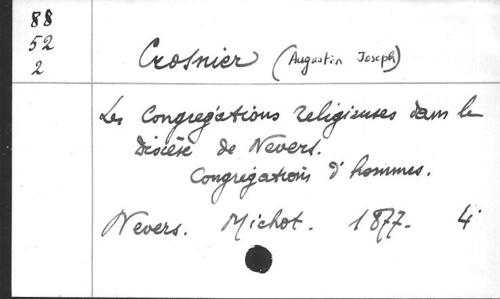 88
52
2
Crosnier (Augustin Joseph)
Les Congrégations religieuses dans le
Diocèse de Nevers.
Congrégations d'hommes.
Nevers. Michot. 1877. 4°